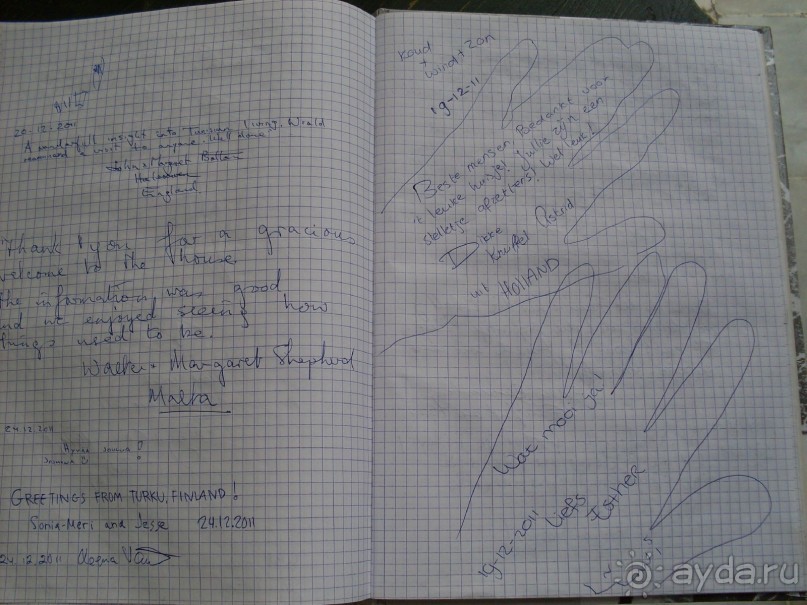 20-12-2011
A wonderfull insight into Tunisian living. Would
recommend a visit to anyone. Well done
John & Margaret
England
Thank you for a gracious
welcome to the house
The information was good
and we enjoyed seeing how
things used to be.
Walter & Margaret Shepherd
Malta
24.12.2011
GREETINGS FROM TURKU, FINLAND!
Sonia-Meri and Jesse 24.12.2011
24.12.2011
Koud
+
wind + zon
19-12-11
Beste mensen, Bedankt voor
't leuke huisje! Jullie zijn een
stelletje Wel leuk!
Dikke
Knuffel Astrid
uit HOLLAND
Wat mooi ja!
19-12-2011 Liefs
Esther
ayda.ru